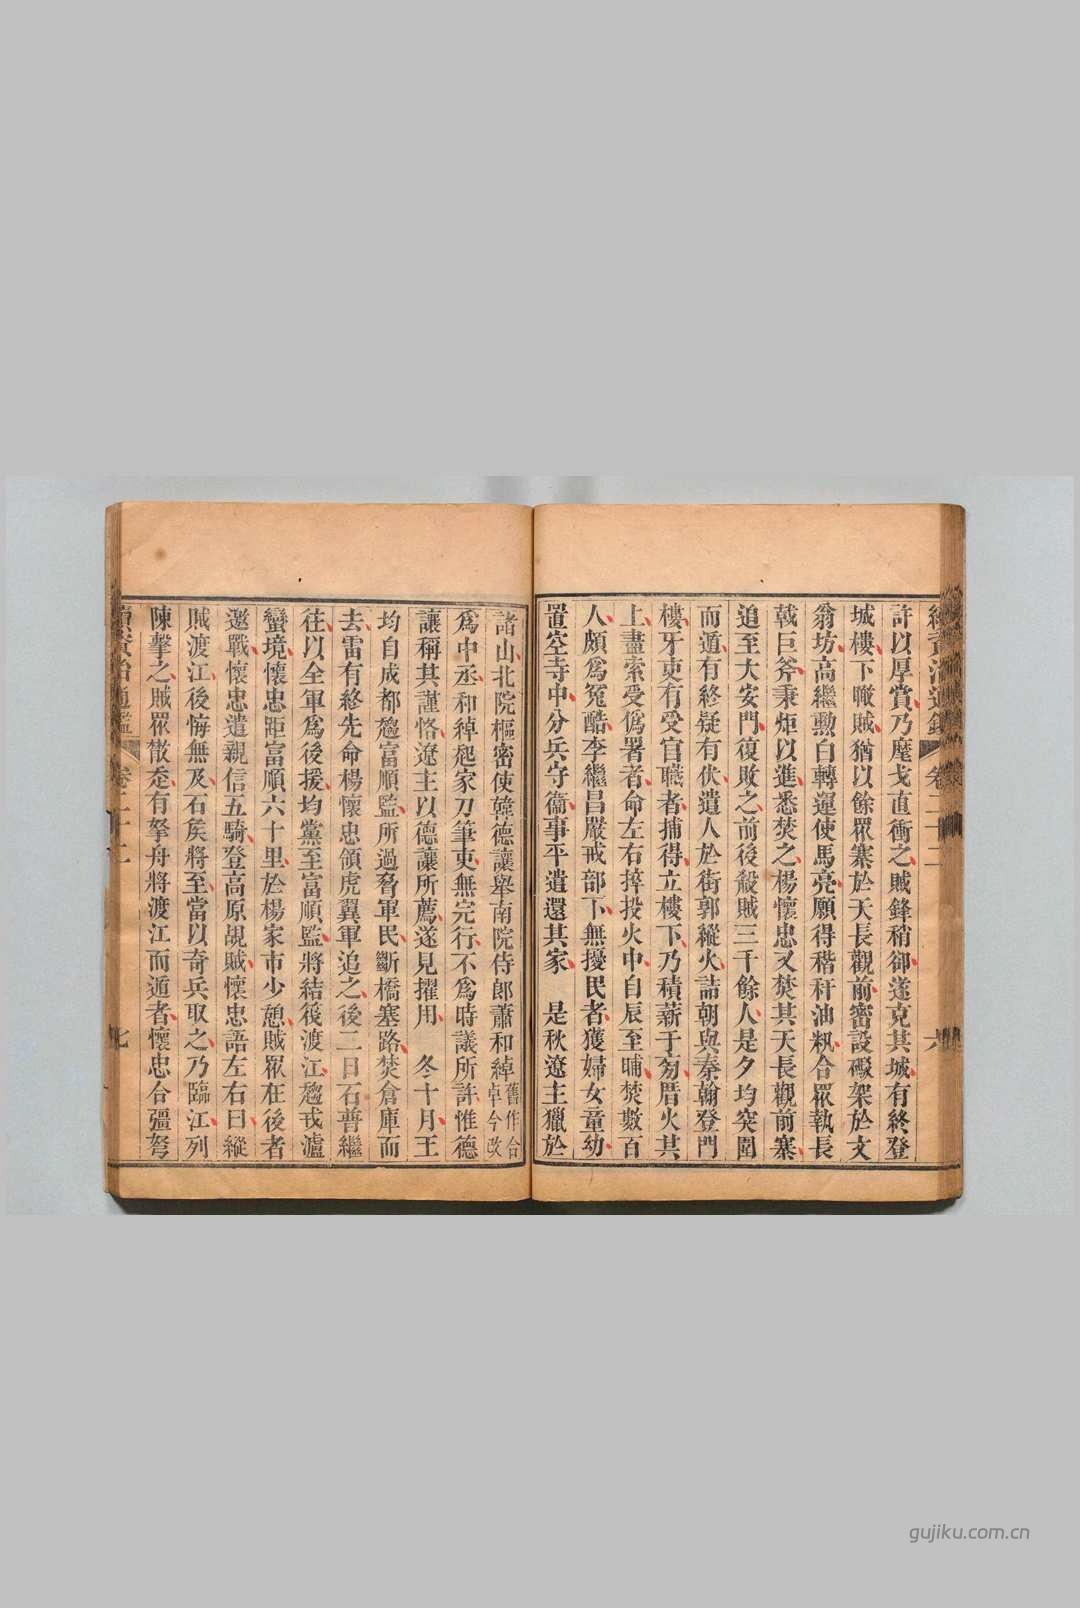 續資治通鑑 卷二十二 六
許以厚賞乃麾戈直衝之賊鋒稍卻遂克其城有終登
城樓下瞰賊猶以餘眾寨於天長觀前密設礮架於文
翁坊高繼勳白轉運使馬亮願得稭秆油籸合眾執長
戟巨斧秉炬以進悉焚之楊懷忠又焚其天長觀前寨
追至大安門復敗之前後殺賊三千餘人是夕均突圍
而遁有終疑有伏遣人於街郭縱火詰朝與秦翰登門
樓牙吏有受官職者捕得立樓下乃積薪于旁厝火其
上盡索受偽署者命左右捽投火中自辰至晡焚數百
人頗為冤酷李繼昌嚴戒部下無擾民者獲婦女童幼
置空寺中分兵守衞事平遣還其家 是秋遼主獵於
諸山北院樞密使韓德讓舉南院侍郎蕭和綽舊作合卓今改
為中丞和綽起家刀筆吏無完行不為時議所許惟德
讓稱其謹恪遼主以德讓所薦遂見擢用 冬十月王
均自成都趨富順監所過脅軍民斷橋塞路焚倉庫而
去雷有終先命楊懷忠領虎翼軍追之後二日石普繼
往以全軍為後援均黨至富順監將結筏渡江趨戎瀘
蠻境懷忠距富順六十里於楊家市少憩賊眾在後者
邀戰懷忠遣親信五騎登高原覘賊懷忠語左右曰縱
賊渡江後悔無及石矦將至當以奇兵取之乃臨江列
陳擊之賊眾散走有拏舟將渡江而遁者懷忠合彊弩
續資治通鑑 卷二十二 七
gujiku.com.cn